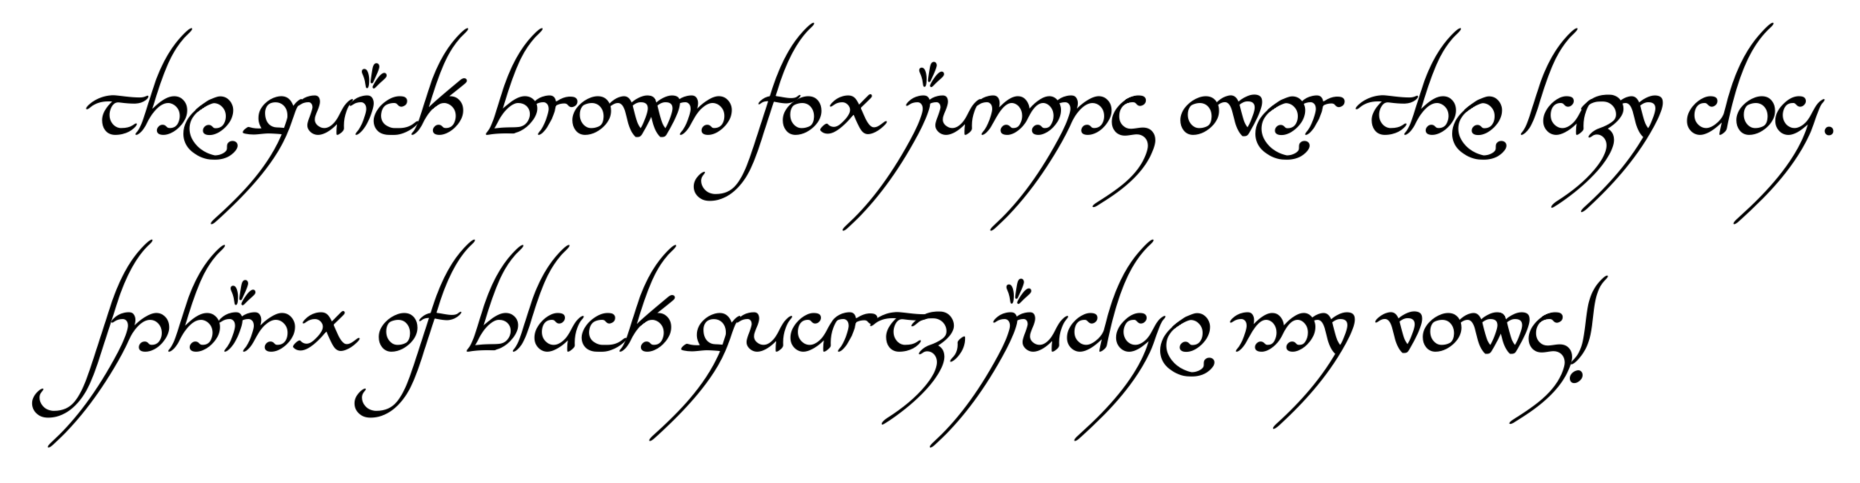 the quick brown fox jumps over the lazy dog.
Sphinx of black quartz, judge my vows!